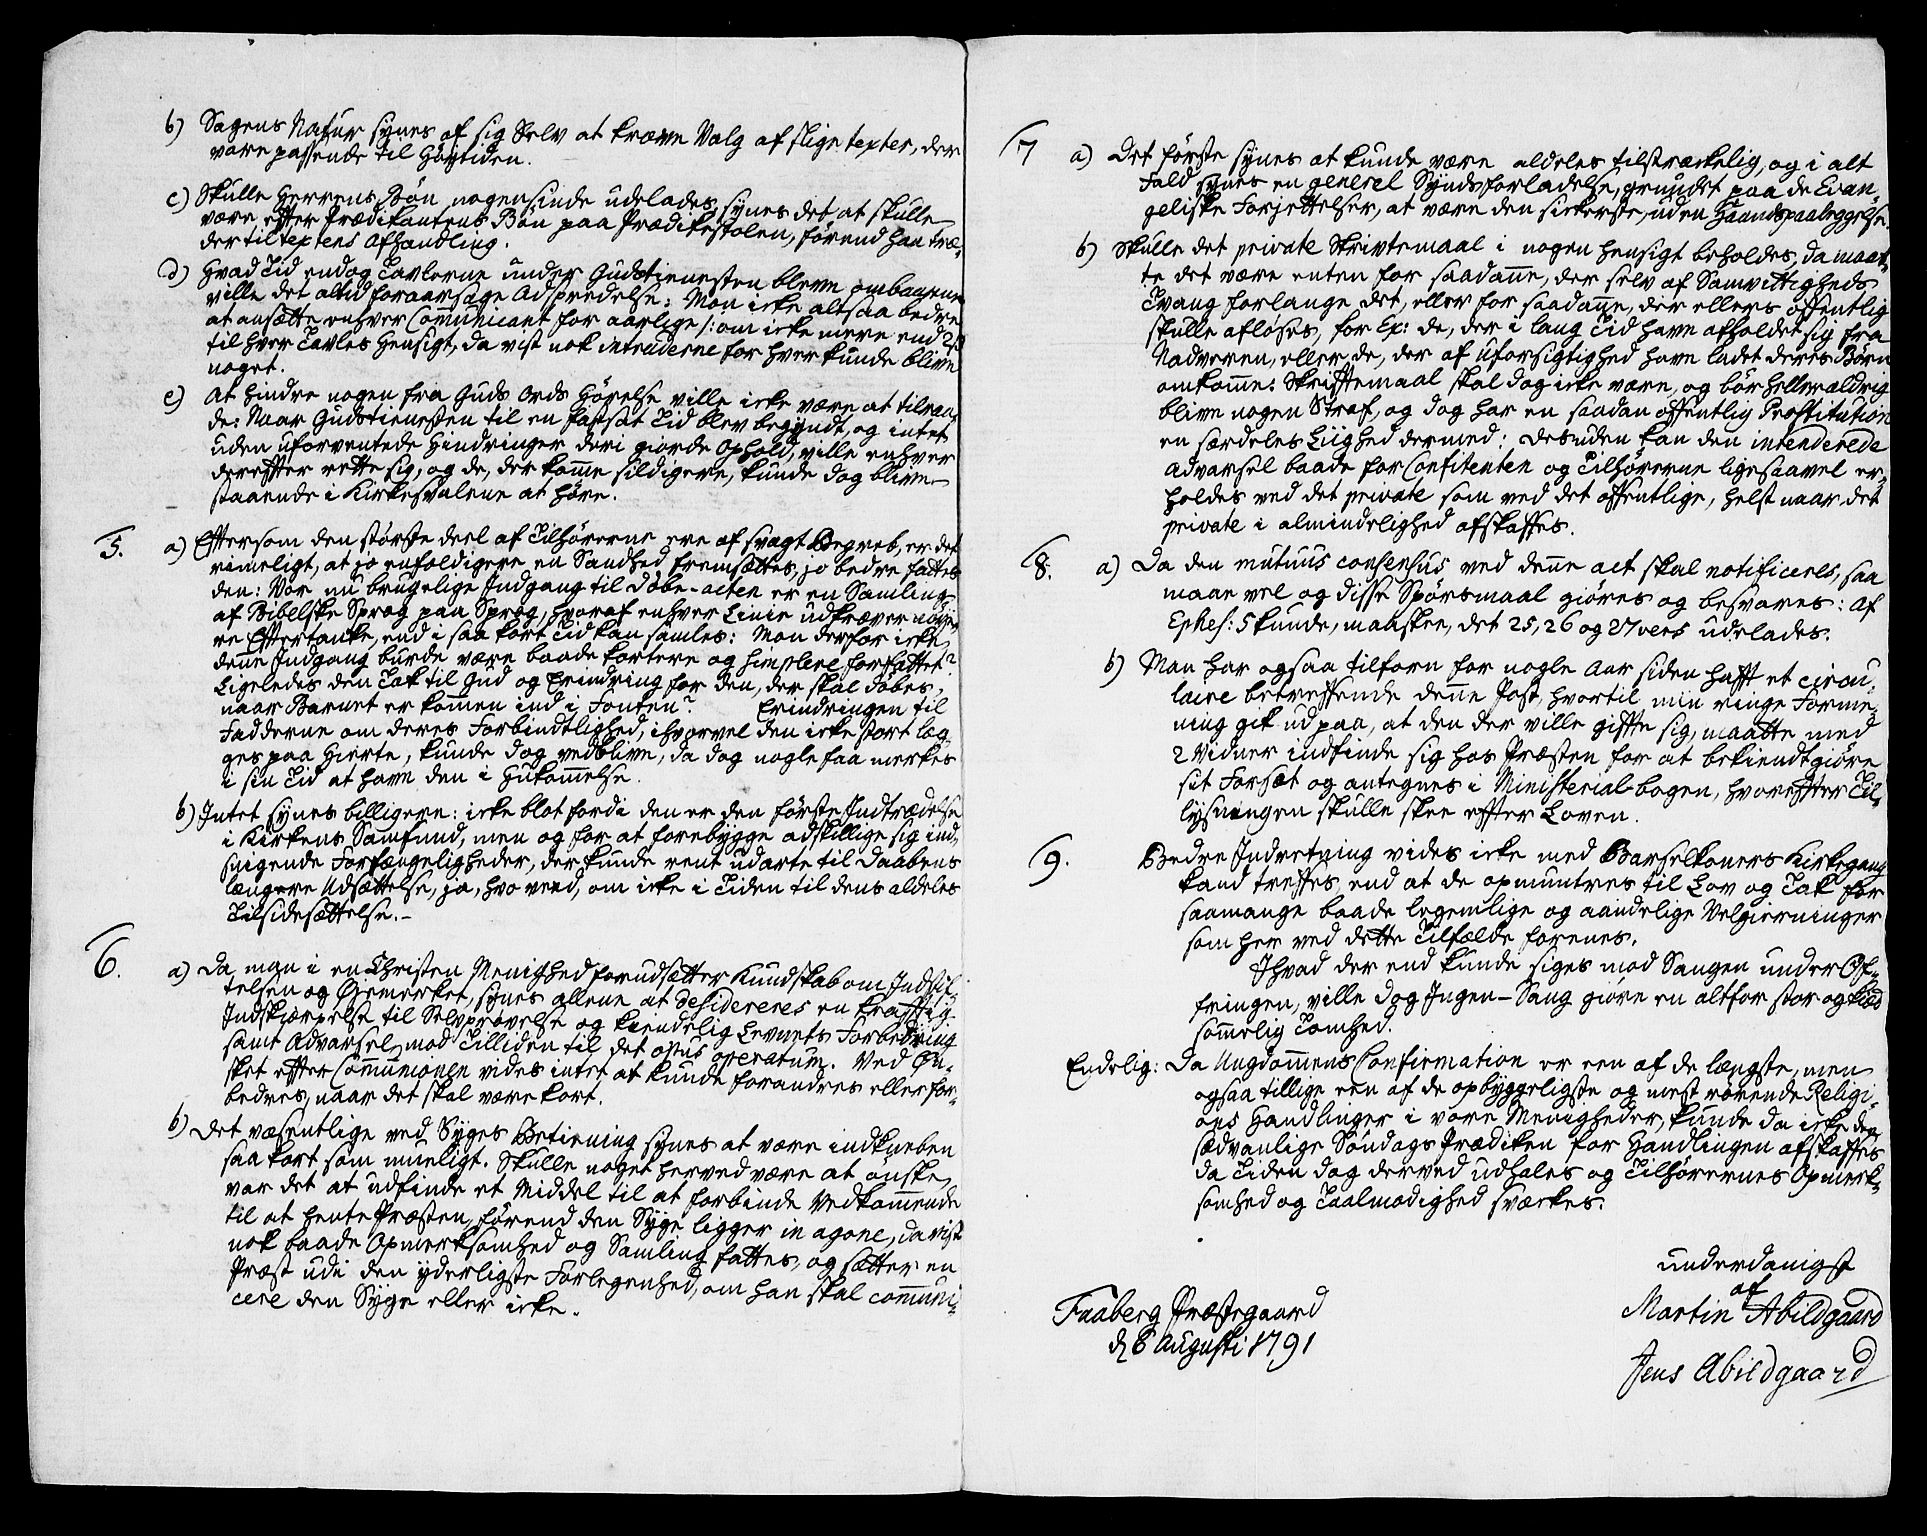 b) Sagens Natur synes af sig Selv at kræve Valg af slige texter, der
vare passende til Höytiden.
c) Skulle Herrens Bön nogensinde udelades, synes det, at skulle
være effter Prædikantens Bön paa Prædikestolen, förend han træ-
der til textens Afhandling.
d) Hvad Tid endog Tavlerne under Gudstienesten bleve ombaarne
ville det altid foraarsage Adspredelse: Mon ikke altsaa bedre
at ansætte enhver Com̅unicant for aarlige /: om ikke mere end 2 ß
til hver Tavles Hensigt, da vist nok intraderne for hver kunde blive
noget.
e) At hindre nogen fra Guds Ords Hörelse ville ikke være at tilraa-
de: Naar Gudstienesten til en fastsat Tid blev begyndt, og intet
uden uforventede Hindringer deri giorde Ophold, ville enhver
dereffter rette sig, og de, der kom̅e sildigere, kunde dog blive
staaende i Kirkesvalene at höre.
5. a) Efftersom den störste deel af Tilhörerne ere af svagt Begreb, er det
rimeligt, at jo enfoldigere en Sandhed fremsættes, jo bedre fattes
den: Vor nu brugelige Indgang til Döbe-acten er en Samling
af Bibelske Sprog paa Sprog, hvoraf enhver Linie udkræver nöye-
re Effter tanke, end i saa kort Tid kan samles: Mon derfor ikke
denne Indgang burde være baade kortere og simplere forfattet?
Ligeledes den Tak til Gud og Erindring for den, der skal döbes,
naar Barnet er kom̅en ind i Fonten? Erindringen til
Fadderne om deres Forbindtlighed, ihvorvel den ikke stort læg-
ges paa Hierte, kunde dog vedblive, da dog nogle faa merkes
i sin Tid at have den i Hukom̅else.
b) Intet synes billigere: ikke blot fordi den er den förste Indtrædelse
i Kirkens Samfund, men og for at forebygge adskillige sig ind-
snigende Forfængeligheder, der kunde rent udarte til Daabens
længere Udsættelse, ja, hvo veed, om ikke i Tiden til dens aldeles
Tilsidesættelse.-
6. a) Da man i en Christen Menighed forudsætter Kundskab om Indstif-
telsen og Öyemerket, synes allene at desidereres en krafftig
Indskjærpelse til Selvprövelse og kiendelig Levnets Forbedring
samt Advarsel mod Tilliden til det opus operatum. Ved Ön-
sket effter Com̅unionen vides intet at kunde forandres eller for-
bedres, naar det skal være kort.
b) Det væsentlige ved Syges Betiening synes at være indkneben
saa kort som mueligt. Skulle noget herved være at önske,
var det at udfinde et Middel til at forbinde Vedkom̅ende
til at hente Præsten, förend den Syge ligger in agone, da vist
nok baade Opmerksomhed og Samling fattes, og sætter en
Præst udi den yderligste Forlegenhed, om han skal com̅uni-
cere den Syge eller ikke.
7 a) Det förste synes at kunde være aldeles tilstrækkelig, og i alt
Fald synes en generel Synds forladelse, grundet paa de Evan-
geliske Forjettelser, at være den sikkerste, uden Haands paaleggelse.
b) Skulle det private Skrivtemaal i nogen Hensigt beholdes, da maat-
te det være enten for saadanne, der selv af Samvittigheds
Tvang forlange det, eller for saadanne, der ellers offentlig
skulle aflöses, for Ex: de, der i lang Tid have afholdet sig fra
Nadveren, eller de, der af Uforsigtighed have ladet deres Börn
omkom̅e: Skrifftemaal skal dog ikke være, og bör heller aldrig
blive nogen Straf, og dog har en saadan offentlig Prostitution
en særdeles Liighed dermed: desuden kan den intenderede
Advarsel baade for Confitenten og Tilhörerne ligesaavel er-
holdes ved det private som ved det offentlige, helst naar det
private i almindelighed afskaffes.
8. a) Da den mutuus consensus ved denne act skal notificeres, saa
maae vel og disse Spörsmaal giöres og besvares: Af
Ephes: 5 kunde, maaskee, det 25, 26 og 27 vers udelades.
b) Man har ogsaa tilforn for nogle Aar siden hafft et circu-
laire betreffende denne Post, hvortil min ringe Forme-
ning gik ud paa, at den der ville giffte sig, maatte med
2 Vidner indfinde sig hos Præsten for at bekiendtgiöre
sit Forsæt og antegnes i Ministerial-bogen, hvoreffter Til-
lysningen skulle skee effter Loven.
9. Bedre Indretning vides ikke med Barselkoners Kirkegang
kand treffes, end at de opmuntres til Lov og Tak for
saamange baade legemlige og aandelige Velgierninger
som her ved dette Tilfælde forenes.
Ihvad der end kunde siges mod Sangen under Of-
fringen, ville dog Ingen-Sang giöre en altfor stor og kied-
som̅elig Tomhed.
Endelig: Da Ungdom̅ens Confirmation er een af de længste, men
ogsaa tillige een af de opbyggeligste og mest rörende Religi-
ons Handlinger i vore Menigheder, kunde da ikke den
sædvanlige Söndags Prædiken for Handlingen afskaffes,
da Tiden dog derved udhales og Tilhörernes Opmerk-
somhed og Taalmodighed svækkes.
underdanigst
af
Faaberg Præstegaard
Martin Abildgaard
d 8 Augusti 1791
Jens Abildgaard